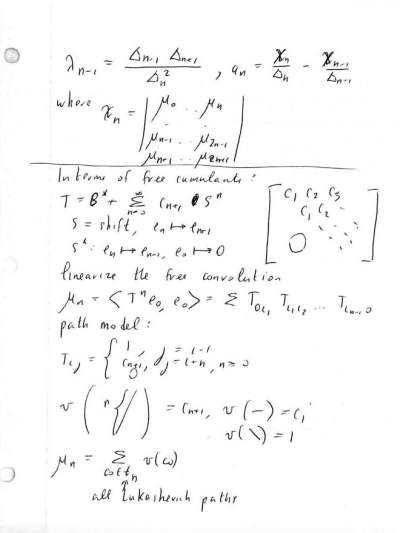 λ_{n-1} = Δ_{n-1} Δ_{n+1} / Δ_n^2 , a_n = χ_n / Δ_n - χ_{n-1} / Δ_{n-1}
where χ_n = | μ_0 . . μ_n
μ_{n-1} - - - μ_{2n-1}
μ_{n+1} - - - μ_{2n+1} |
In terms of free cumulants :
T = B^* + Σ_{n=0}^∞ c_{n+1} S^n
[ c_1 c_2 c_3
c_1 c_2 . .
O ]
S = shift, e_n ↦ e_{n+1}
S^* : e_n ↦ e_{n-1}, e_0 ↦ 0
linearize the free convolution
μ_n = ⟨T^n e_0, e_0⟩ = Σ T_{0 i_1} T_{i_1 i_2} ... T_{i_{n-1} 0}
path model :
T_{ij} = { 1, j = i-1
c_{n+1}, j = i+n, n ≥ 0
v ( n { / ) = c_{n+1}, v (−) = c_1
v(\) = 1
μ_n = Σ_{ω∈Ł_n} v(ω)
all Łukashevich paths